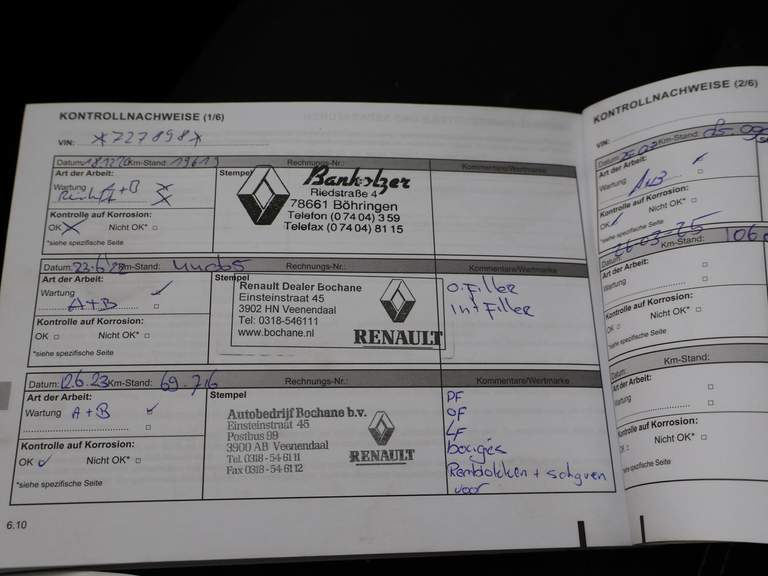 KONTROLLNACHWEISE (1/6)
VIN: *727898*
Datum: Km-Stand: 19619 Rechnungs-Nr.: Kommentare/Wertmarke
Art der Arbeit:
Wartung A+B
Kontrolle auf Korrosion:
OK Nicht OK*
*siehe spezifische Seite
Stempel
Bankolzer
Riedstraße 4
78661 Böhringen
Telefon (0 74 04) 3 59
Telefax (0 74 04) 81 15
Datum: Km-Stand: Rechnungs-Nr.: Kommentare/Wertmarke
Art der Arbeit:
Wartung
A+B
Kontrolle auf Korrosion:
OK Nicht OK*
*siehe spezifische Seite
Stempel
Renault Dealer Bochane
Einsteinstraat 45
3902 HN Veenendaal
Tel: 0318-546111
www.bochane.nl
RENAULT
o.filler
int filler
Datum: 12.6.23 Km-Stand: 69.716 Rechnungs-Nr.: Kommentare/Wertmarke
Art der Arbeit:
Wartung A+B
Kontrolle auf Korrosion:
OK Nicht OK*
*siehe spezifische Seite
Stempel
Autobedrijf Bochane b.v.
Einsteinstraat 45
Postbus 99
3900 AB Veenendaal
Tel. 0318-54 61 11
Fax 0318-54 61 12
RENAULT
PF
OF
LF
bougies
Remblokken + schyven
voor
6.10
KONTROLLNACHWEISE (2/6)
VIN:
Km-Stand:
Art der Arbeit:
Wartung
A+B
Kontrolle auf Korrosion:
OK Nicht OK*
*siehe spezifische Seite
26-03-25
Km-Stand: 106
Art der Arbeit:
Wartung
Kontrolle auf Korrosion:
OK Nicht OK*
*siehe spezifische Seite
Datum: Km-Stand:
Art der Arbeit:
Wartung
Kontrolle auf Korrosion:
OK Nicht OK*
*siehe spezifische Seite